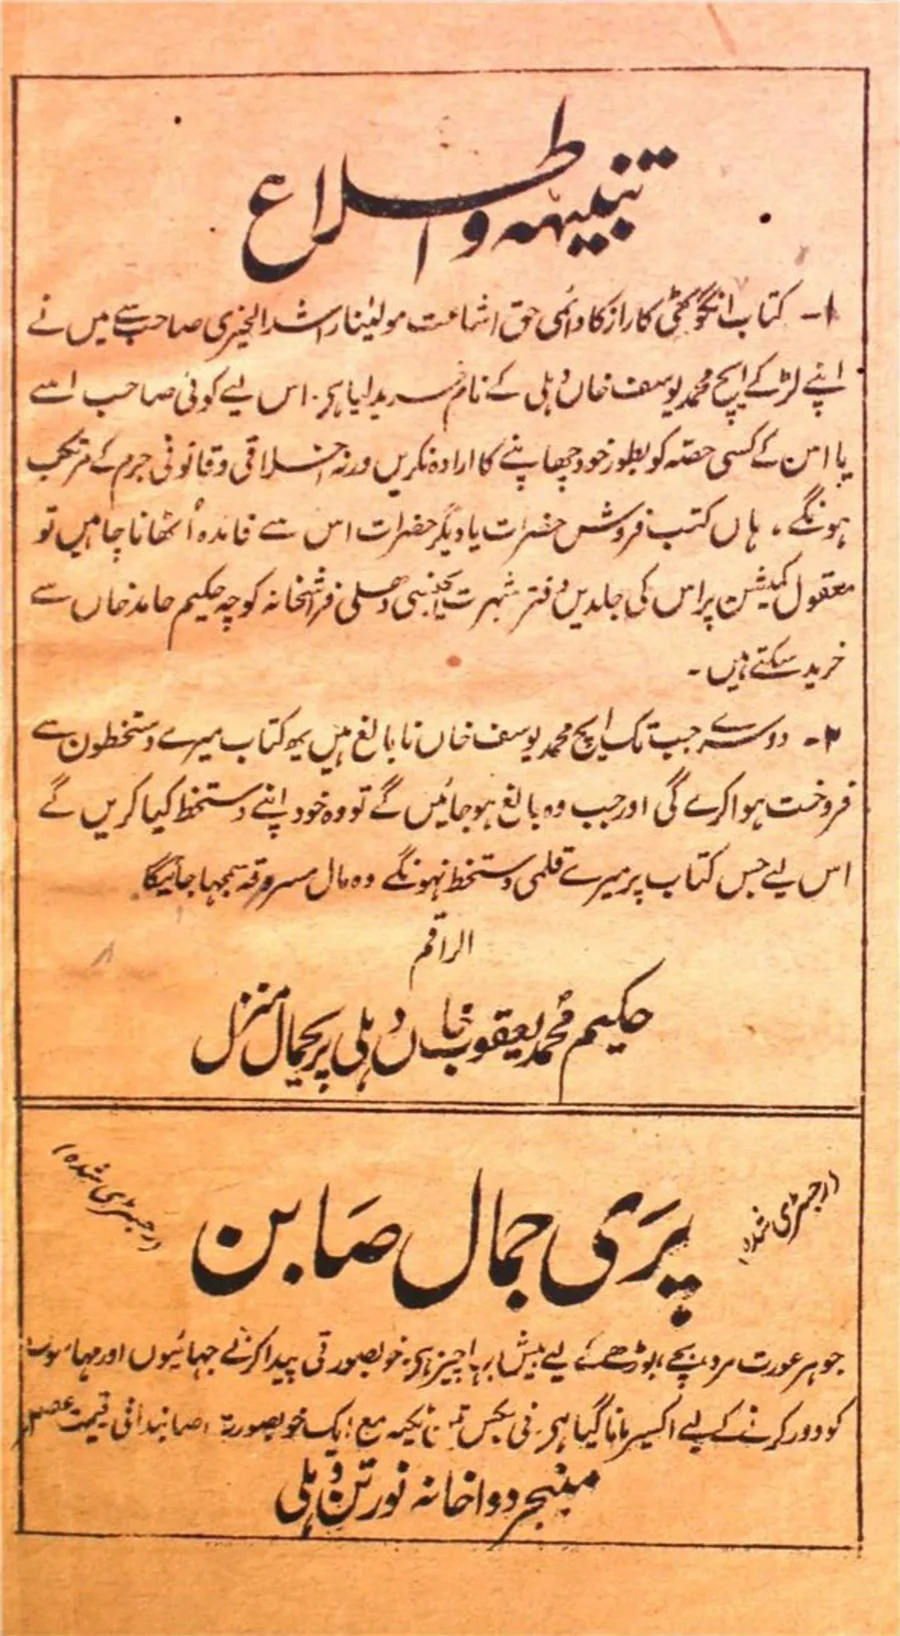 تنبیہہ و اطلاع
۱- کتاب انگوٹھی کا راز کا دائمی حق اشاعت مولینا راشد الخیری صاحب سے میں نے
اپنے لڑکے ایچ محمد یوسف خاں دہلی کے نام خرید لیا ہر. اس لیے کوئی صاحب اسے
یا اس کے کسی حصّہ کو بطور خود چھاپنے کا ارادہ نکریں ورنہ اخلاقی و قانونی جرم کے مرتکب
ہونگے. ہاں کتب فروش حضرات یا دیگر حضرات اس سے فائدہ اُٹھانا چاہیں تو
معقول کمیشن پر اس کی جلدیں دفتر شہرت ایجنسی دھلی فراشخانہ کوچہ حکیم حامد خاں سے
خرید سکتے ہیں۔
۲- دوسرے جب تک ایچ محمد یوسف خاں نابالغ ہیں یہ کتاب میرے دستخطون سے
فروخت ہوا کرے گی اور جب وہ بالغ ہو جائیں گے تو وہ خود اپنے دستخط کیا کریں گے
اس لیے جس کتاب پر میرے قلمی دستخط نہونگے وہ مال مسروقہ سمجہا جائیگا
الراقم
حکیم محمد یعقوب خاں دہلی پریجمال منزل
(رجسٹری شدہ)
پَرَی جمال صَابن
(رجسٹری شدہ)
جو ہر عورت مرد بچے، بوڑھے کے لیے بیش بہا چیز ہر. خوبصورتی پیدا کرنے جہائیوں اور مہاسوں
کو دور کرنے کے لیے اکسیر مانا گیا ہر. فی بکس تین ٹکیہ مع ایک خوبصورت صابندانی قیمت
منیجر دواخانہ نورتن دہلی